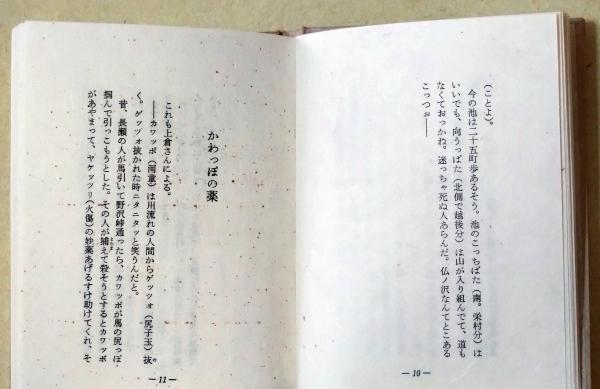 (ことよ)。
今の池は二十五町歩あるそう。池のこっちばた(南。栄村分)は
いいでも、向うっぱた(北側で越後分)は山が入り組んでて、道も
なくておっかね。迷っちゃ死ぬ人あらんだ。仏ノ沢なんてとこある
こっつぉ――
―10―
かわっぽの薬
これも上倉さんによる。
――カワッポ(河童)は川流れの人間からゲッツォ(尻子玉)抜
く。ゲッツォ抜かれた時ニタニタッと笑うんだと。
昔、長瀬の人が馬引いて野沢峠通ったら、カワッポが馬の尻っぽ
掴んで引っこもうとした。その人が捕えて殺そうとするとカワッポ
があやまって、ヤケッツリ(火傷)の妙薬あげるすけ助けてくれ、そ
―11―